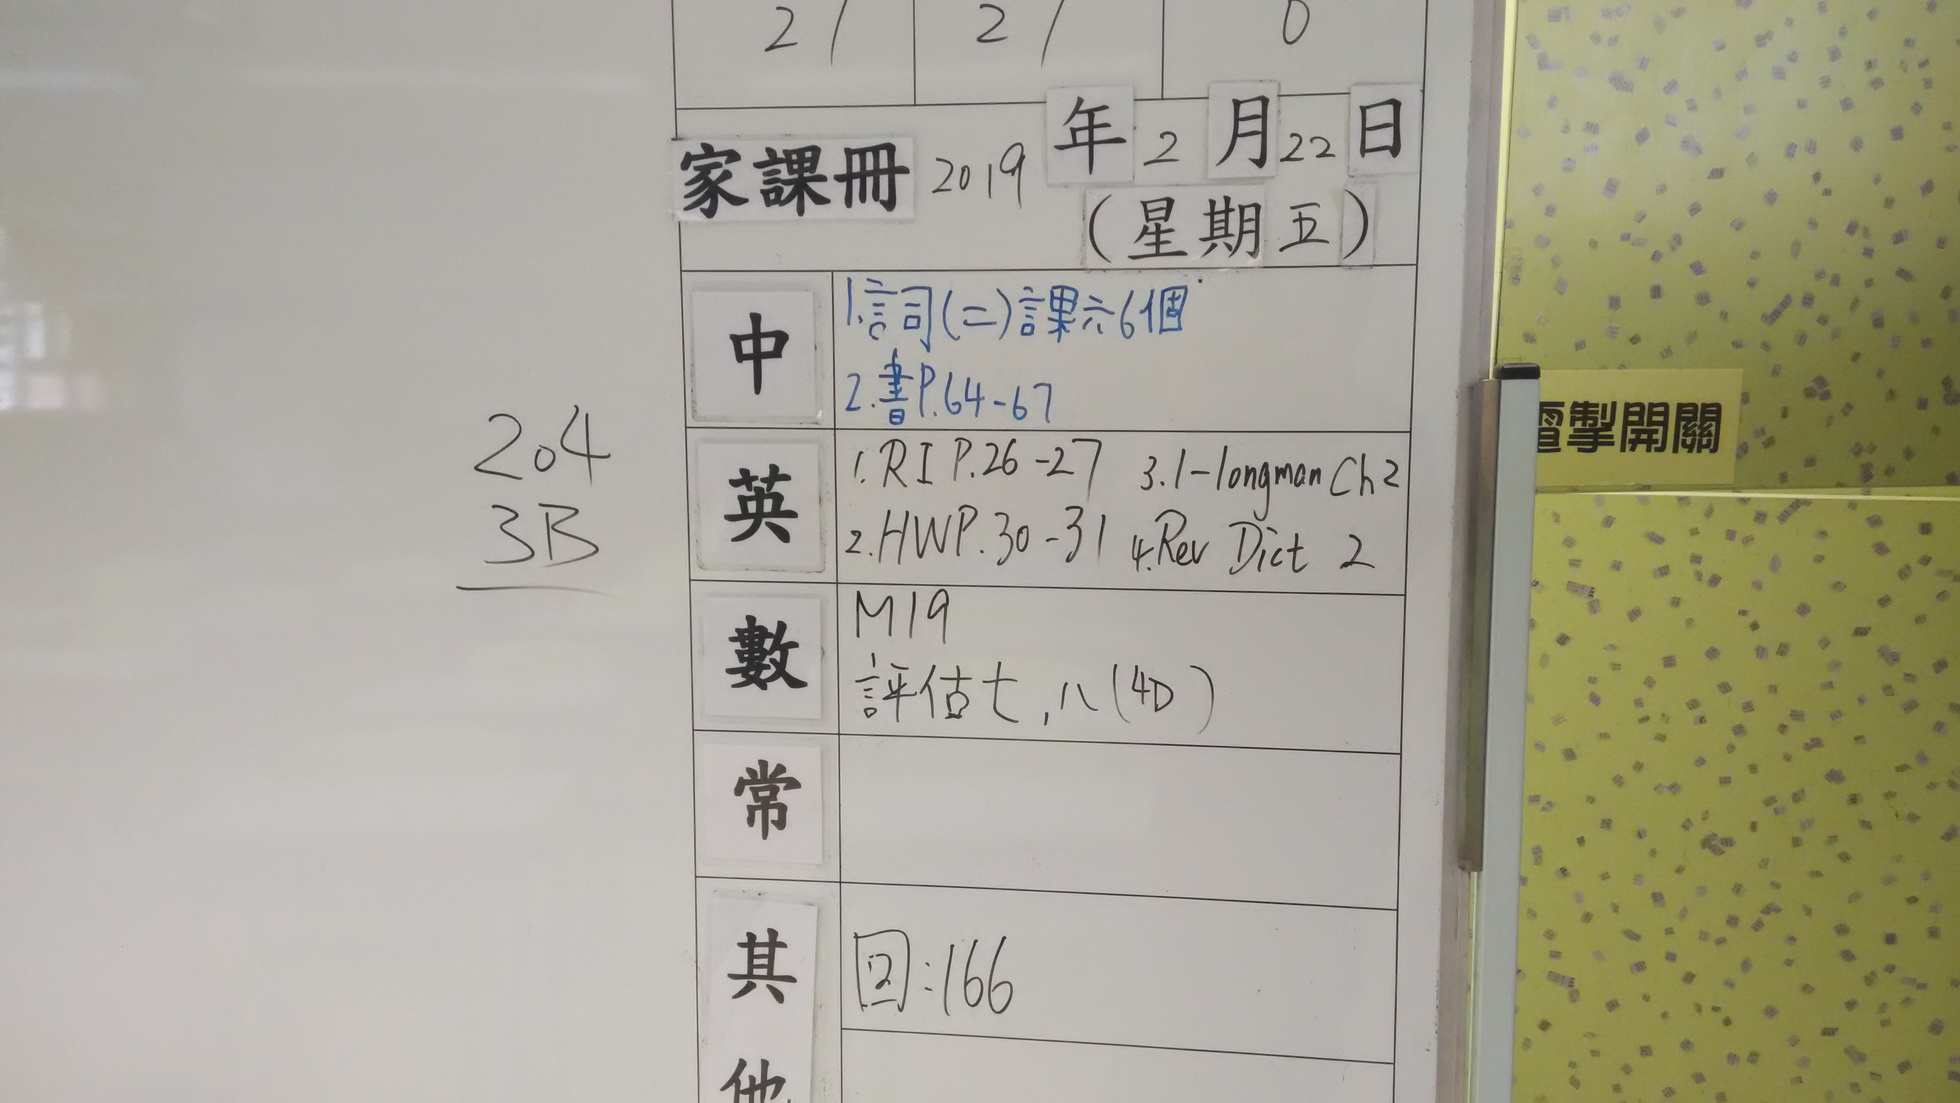 21 21 0
家課冊 2019 年 2 月 22 日
(星期五)
中
1.詞(二)課六6個
2.書P.64-67
204
3B
英
1.RI P.26-27 3.I-longman Ch2
2.HWP.30-31 4.Rev Dict 2
電掣開關
數
M19
評估七,八(4D)
常
其他
回:166